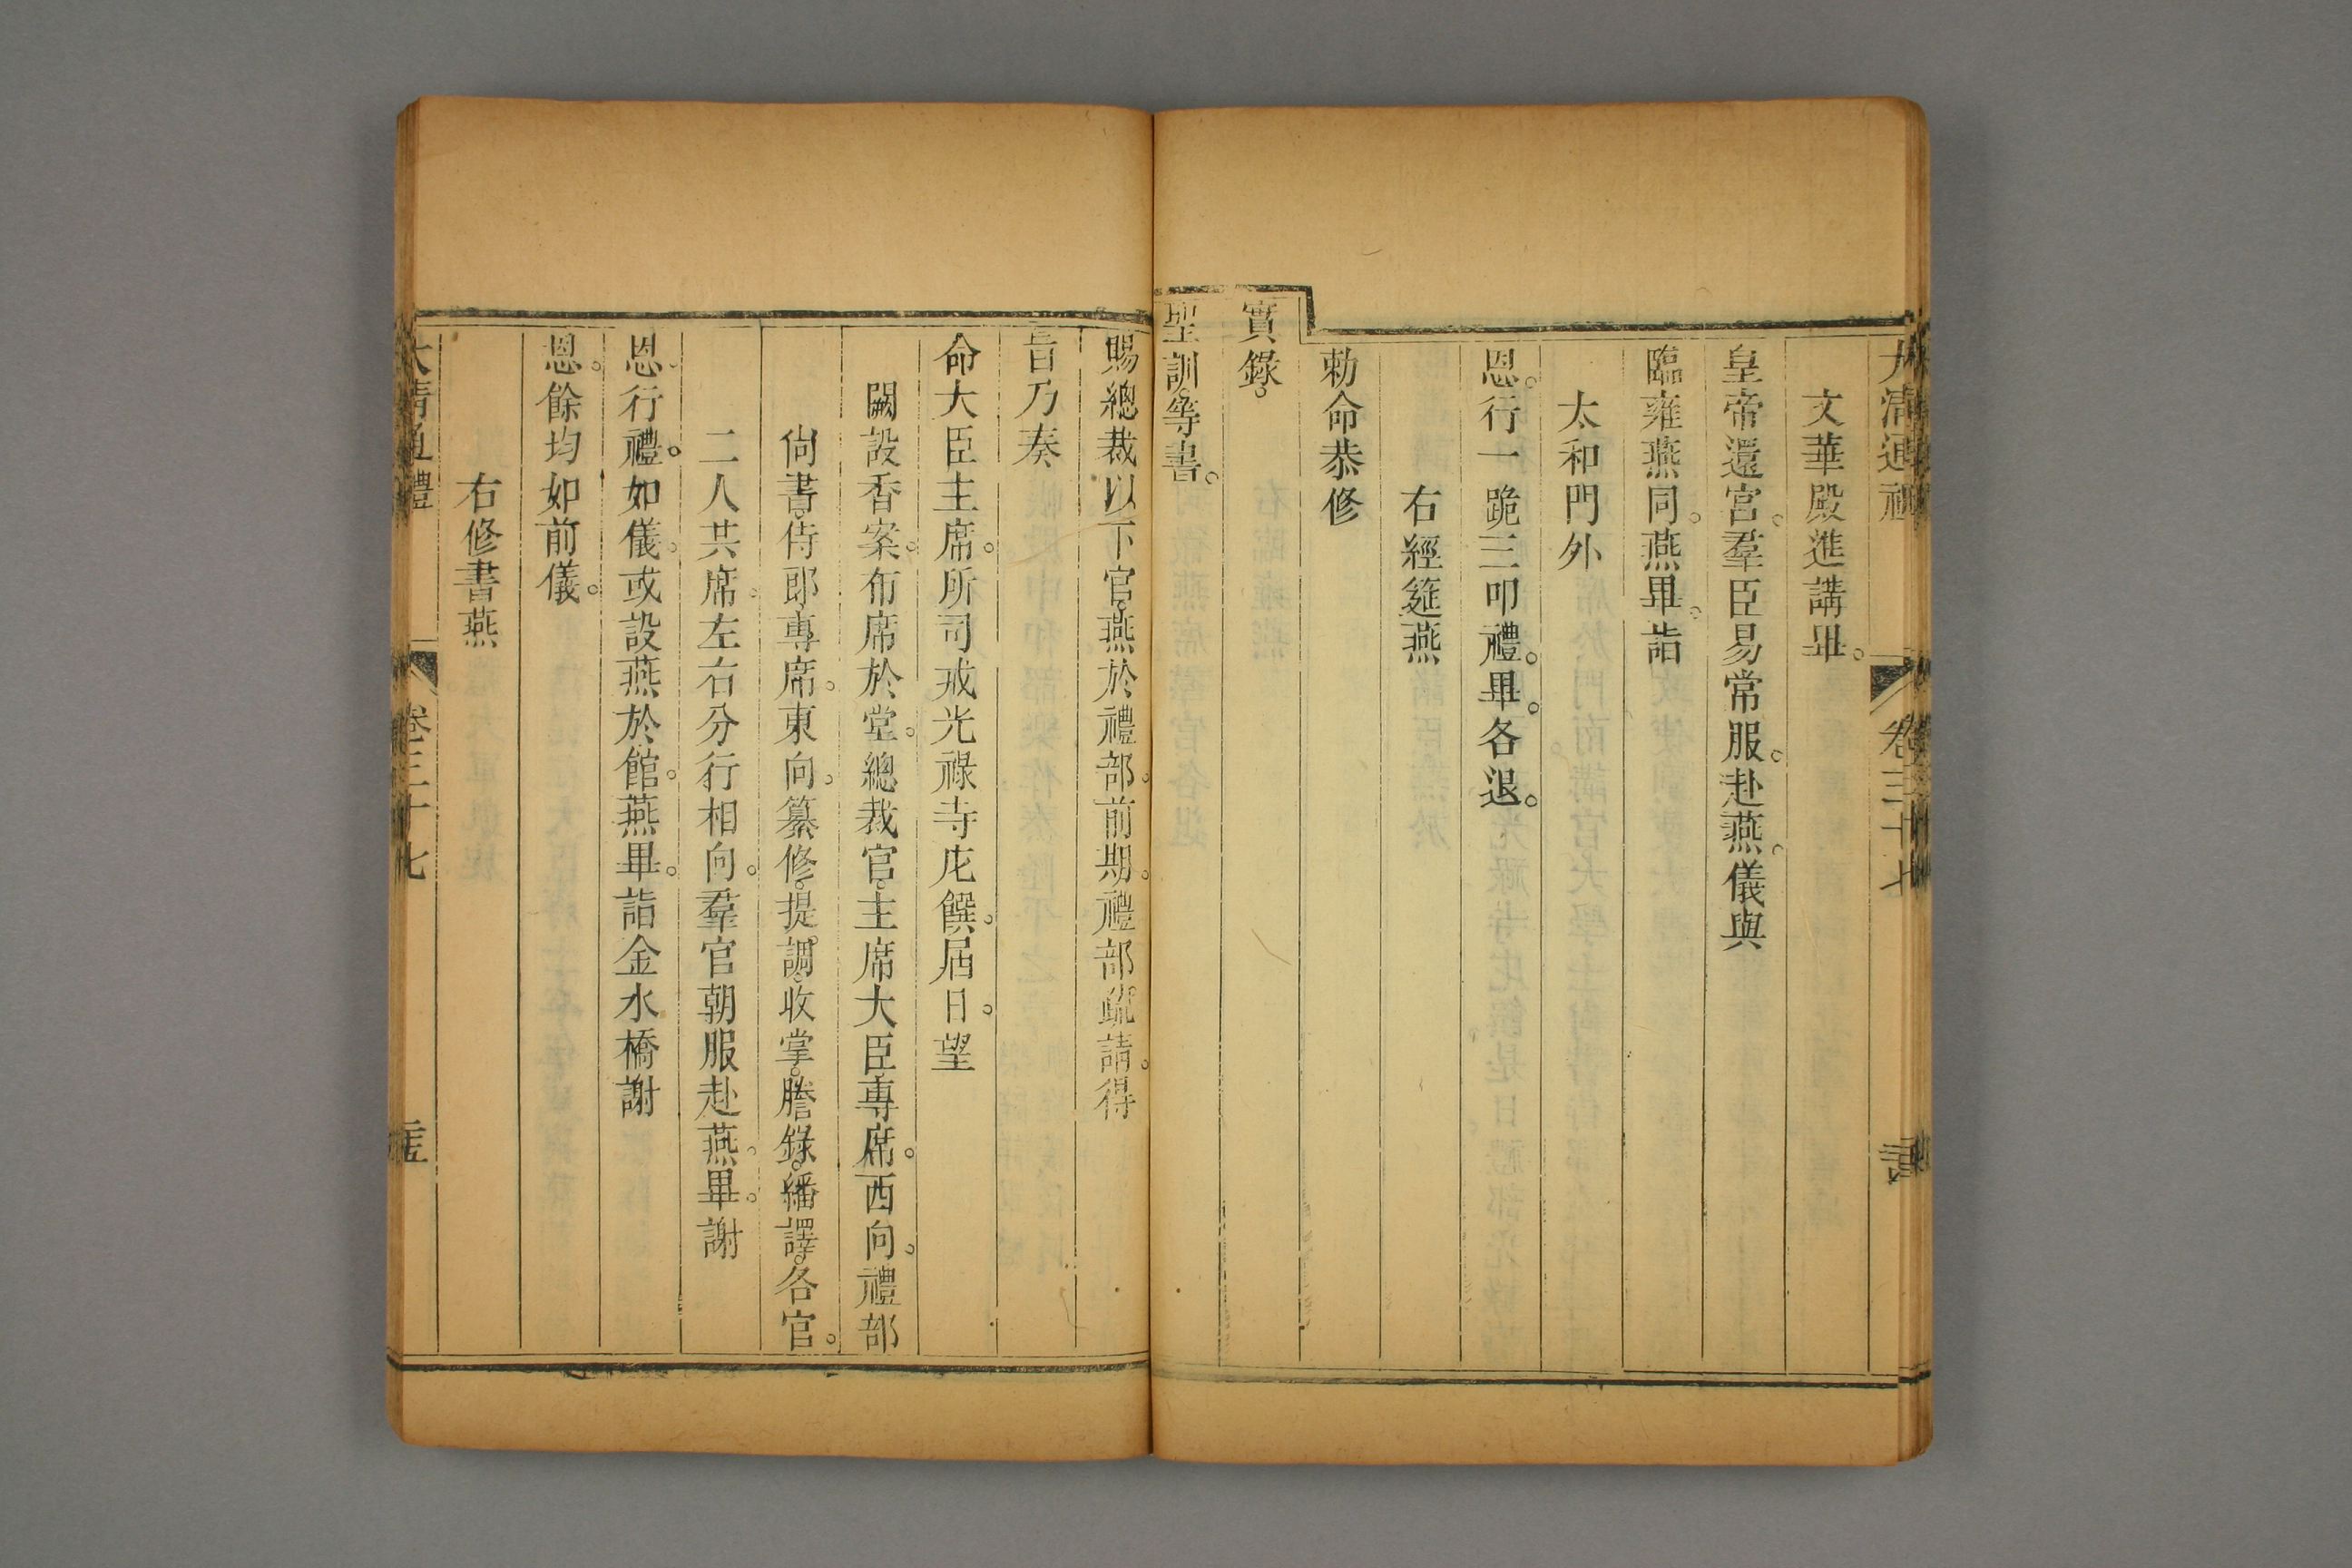 大清通禮 卷三十七
文華殿進講畢。
皇帝還宮。羣臣易常服。赴燕。儀與
臨雍燕同。燕畢。詣
太和門外
恩。行一跪三叩禮。畢。各退。
右經筵燕
勅命恭修
實錄。
聖訓。等書。
賜總裁以下官。燕於禮部。前期。禮部疏請。得
旨乃奏
命大臣主席。所司戒光祿寺庀饌。屆日。望
闕設香案。布席於堂。總裁官。主席大臣專席。西向。禮部
尚書。侍郎專席。東向。纂修。提調。收掌。謄錄。繙譯。各官。
二人共席。左右分行相向。羣官朝服赴燕。畢。謝
恩。行禮。如儀。或設燕於館。燕畢。詣金水橋謝
恩。餘均如前儀。
右修書燕
大清通禮 卷三十七